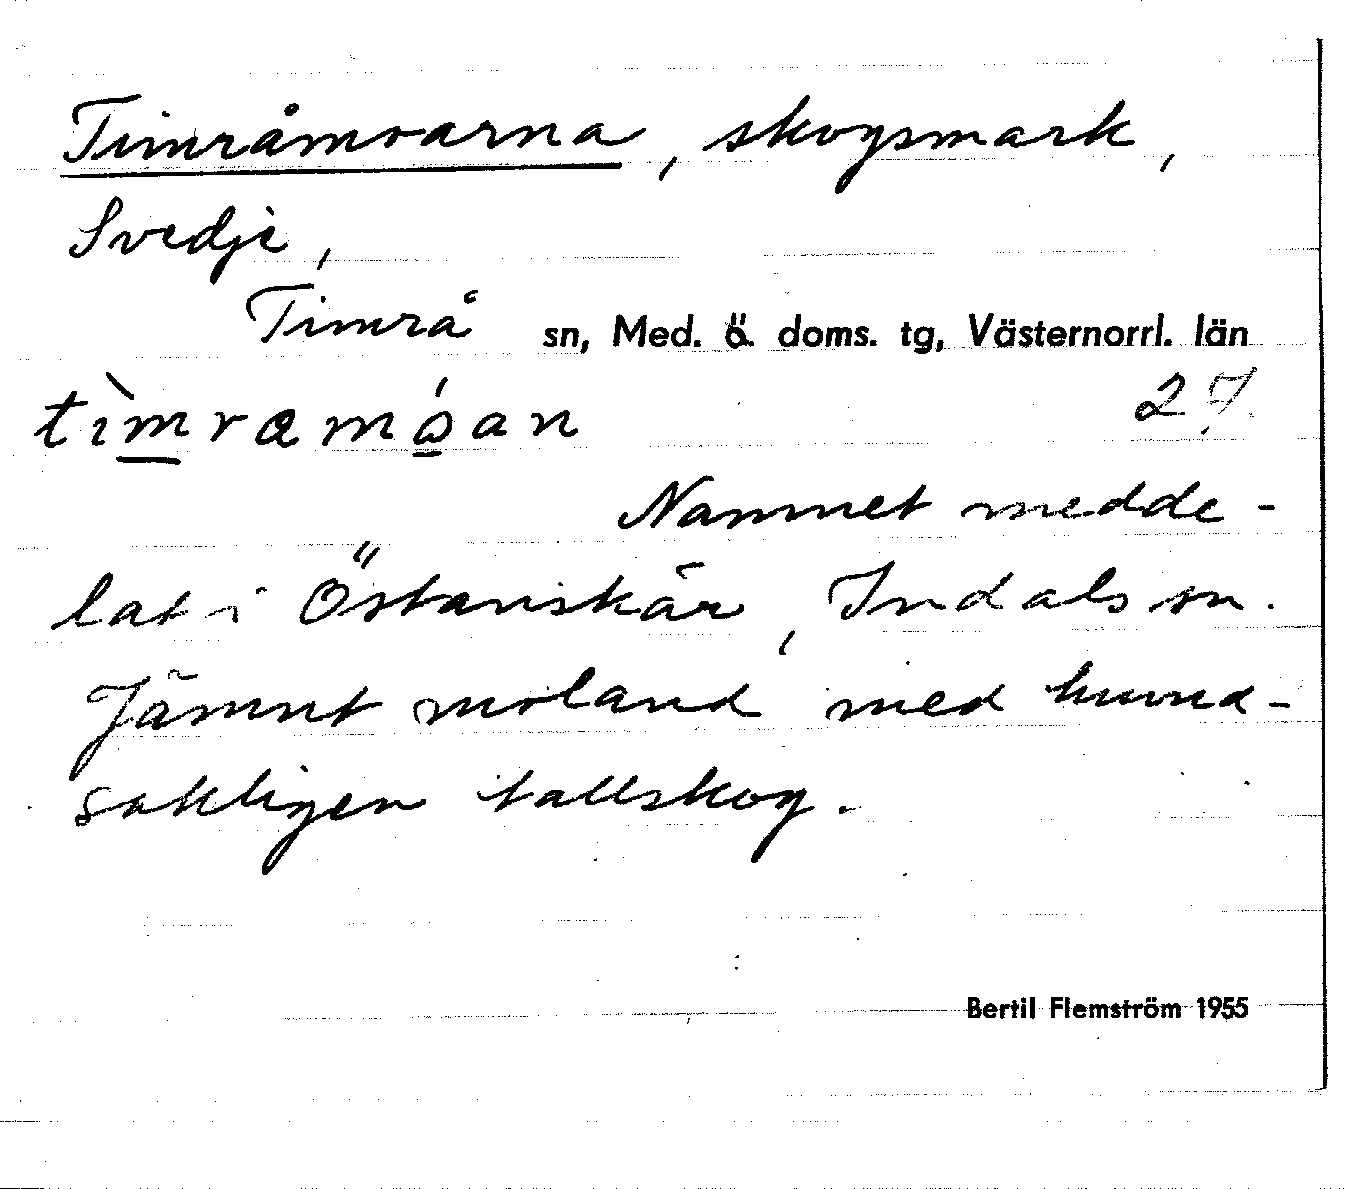 Timråmoarna, skogsmark,
Svedje,
Timrå sn, Med. ö. doms. tg, Västernorrl. län
tìmramóan 27.
Namnet medde-
lat i Östanskär, Indals sn.
Jämnt moland med huvud-
sakligen tallskog.
Bertil Flemström 1955